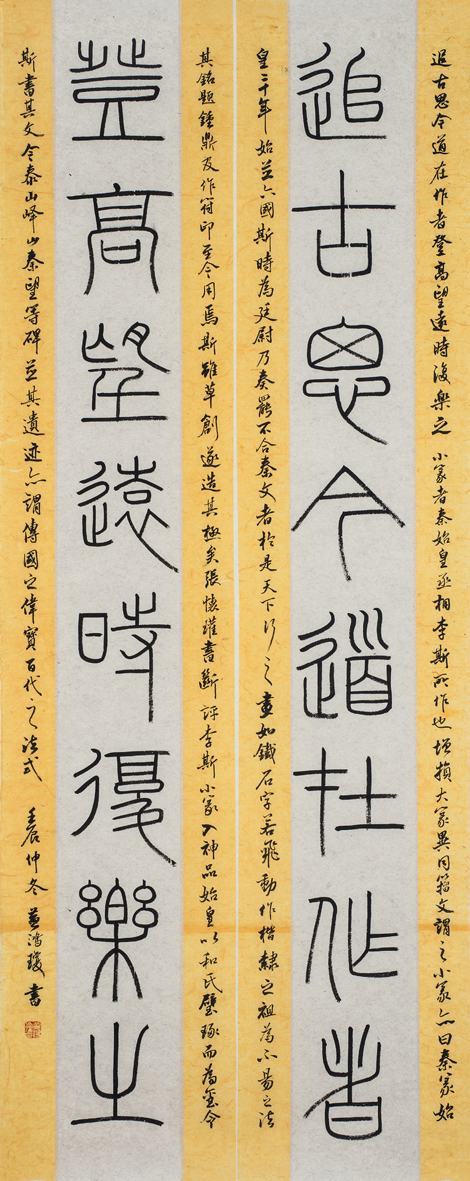 追古思今道在作者登高望遠時復樂之 小篆者秦始皇丞相李斯所作也增損大篆異同籀文謂之小篆亦曰秦篆始
追古思今道在作者
皇三十年始並六國斯時為廷尉乃奏罷不合秦文者於是天下行之畫如鐵石字若飛動作楷隸之祖為不易之法
其銘題鍾鼎及作符印至今用焉斯雖草創遂造其極矣張懷瓘書斷評李斯小篆入神品始皇以和氏璧琢而為璽令
登高望遠時復樂之
斯書其文今泰山嶧山秦望等碑並其遺迹亦謂傳國之偉寶百代之法式 壬辰仲冬 書